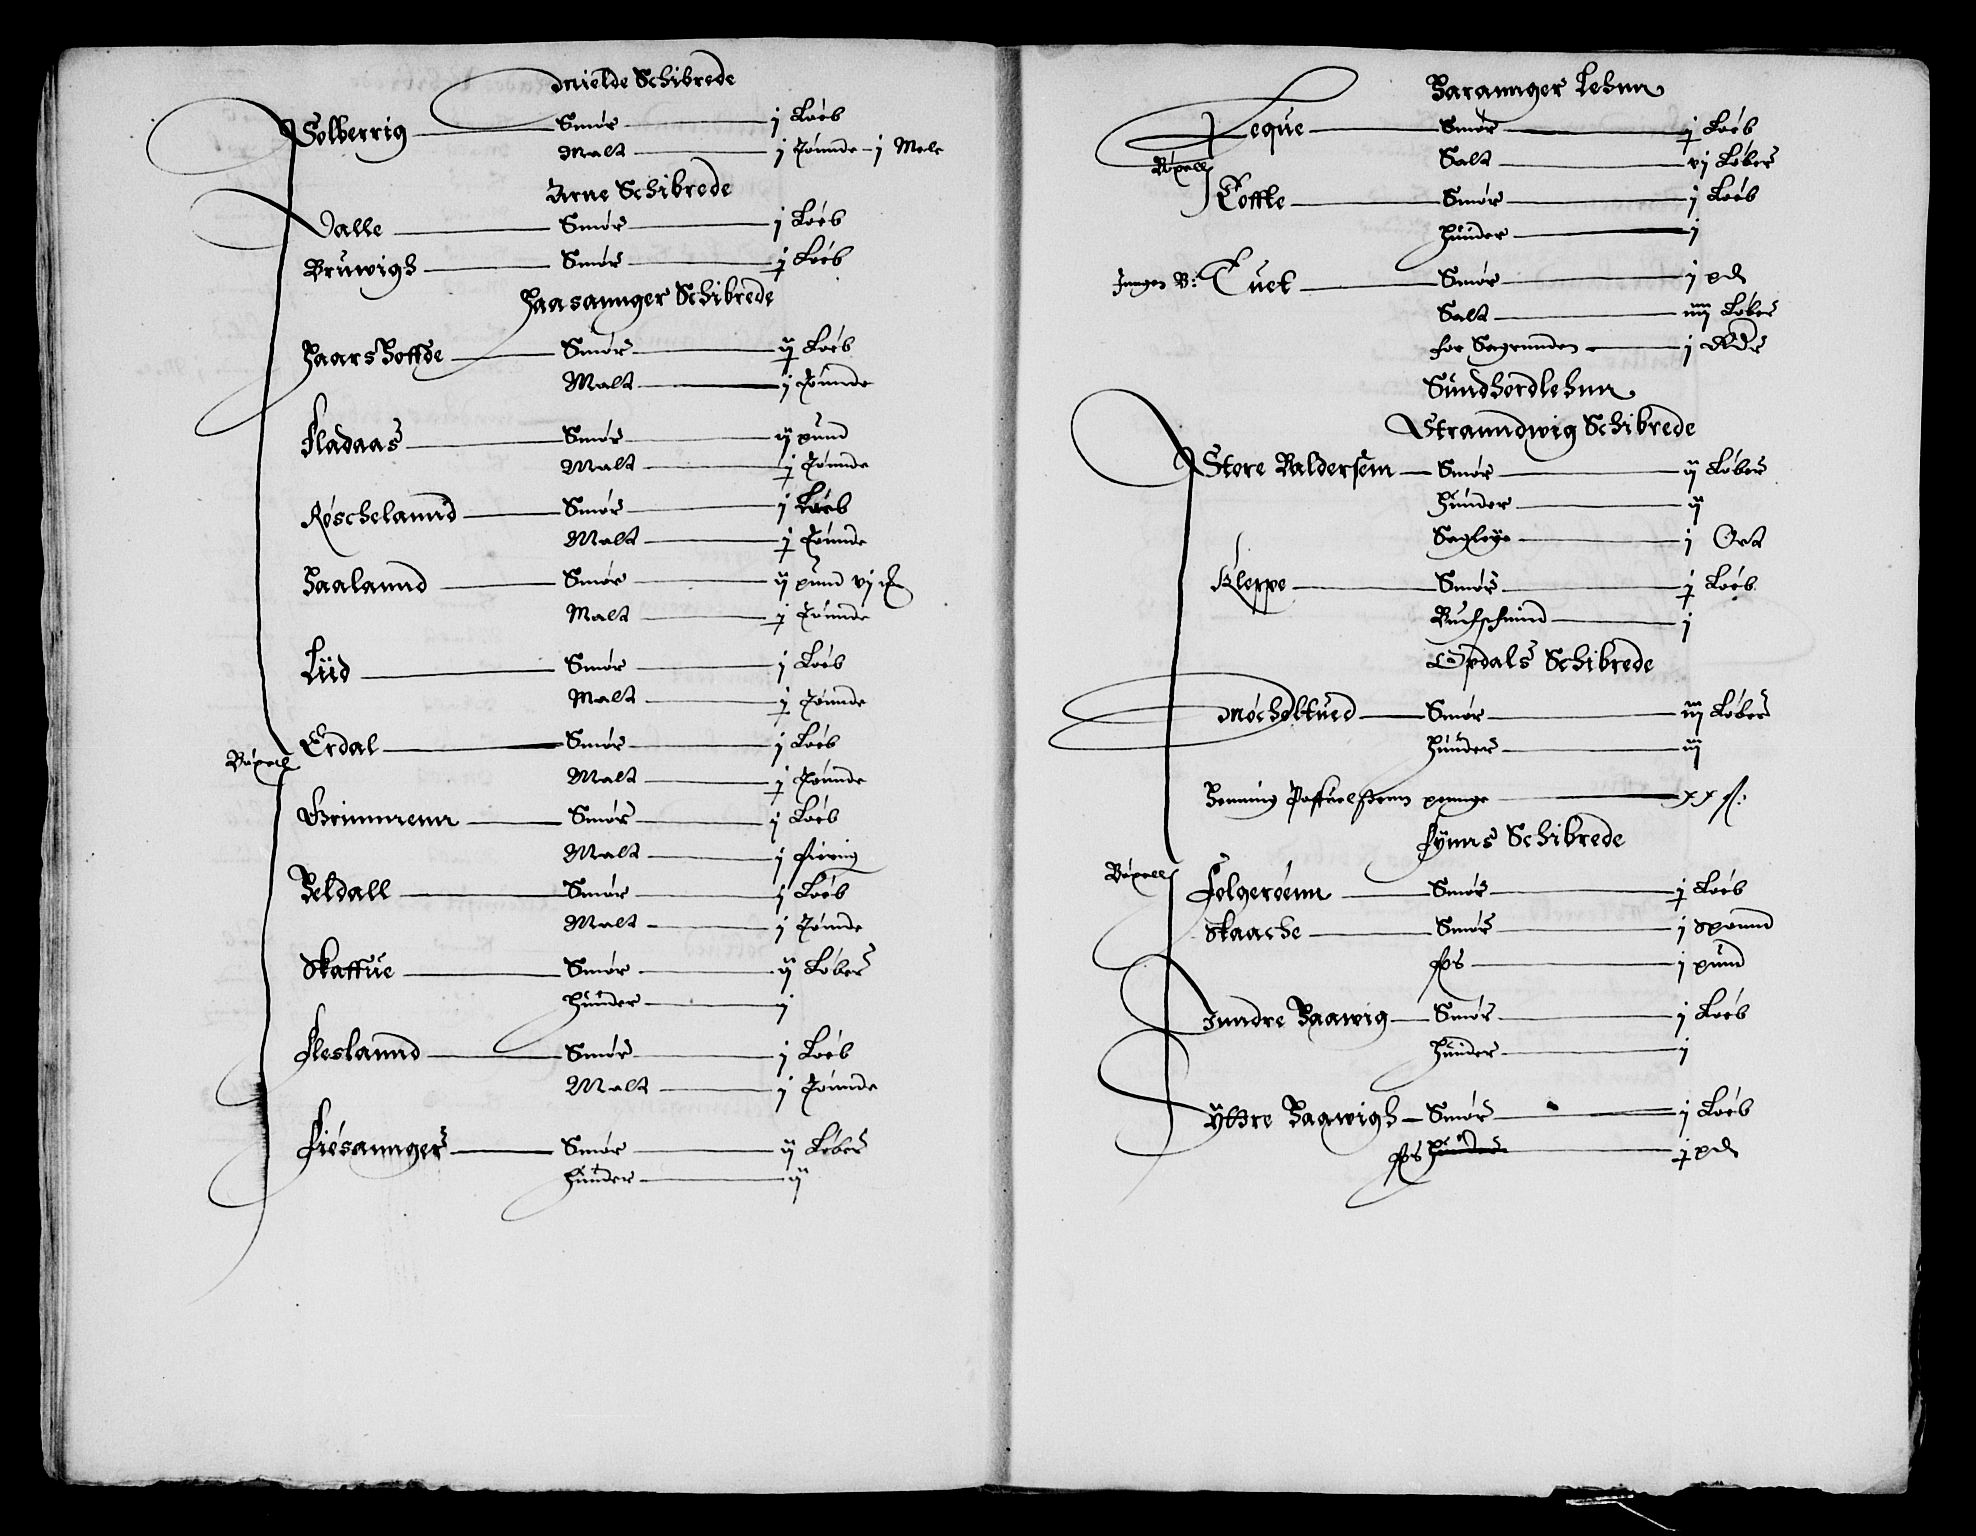 Mielde Schibrede
Solberrig Smør j Løeb
Malt j Tønnde j Mele
Arne Schibrede
Dalle Smør j Løeb
Bruwigh Smør j Løeb
Haasannger Schibrede
Haarshoffde Smør ij Løeb
Malt j Tønnde
Fladaas Smør ij pund
Malt j Tønnde
Røschelannd Smør j Løeb
Malt j Tønnde
Haalannd Smør ij pund vj
Malt j Tønnde
Liid Smør j Løeb
Malt j Tønnde
Erdal Smør j Løeb
Bøxell
Malt j Tønnde
Grimmenn Smør j Løeb
Malt j fiering
Heldall Smør j Løeb
Malt j Tønnde
Skaffue Smør ij Løber
Huuder j
Fleslannd Smør j Løeb
Malt j Tønnde
Fiésannger Smør ij Løber
Huuder ij
Harannger Lehnn
Leque Smør j Løeb
Salt vj Løber
Bøxell
Toffte Smør j Løeb
Huuder j
Inngen B: Tuet Smør j pd
Salt iiij Løber
for Sagrunden j Rdr
Sundhordlehnn
Stranndwig Schibrede
Store Baldersem Smør ij Løber
Huuder ij
Sagløye j Ort
Kleppe Smør j Løeb
Buchschind j
Opdals Schibrede
Møcheltued Smør iij Løber
Huuder iij
Henning penge xx
Fynns Schibrede
Bøxell
Folgerøenn Smør j Løeb
Skaache Smør j Spannd
fos j pund
Inndre Haawig Smør j Løeb
Huuder j
Ytthre Haawigh Smør j Løeb
fos Huuder j pd